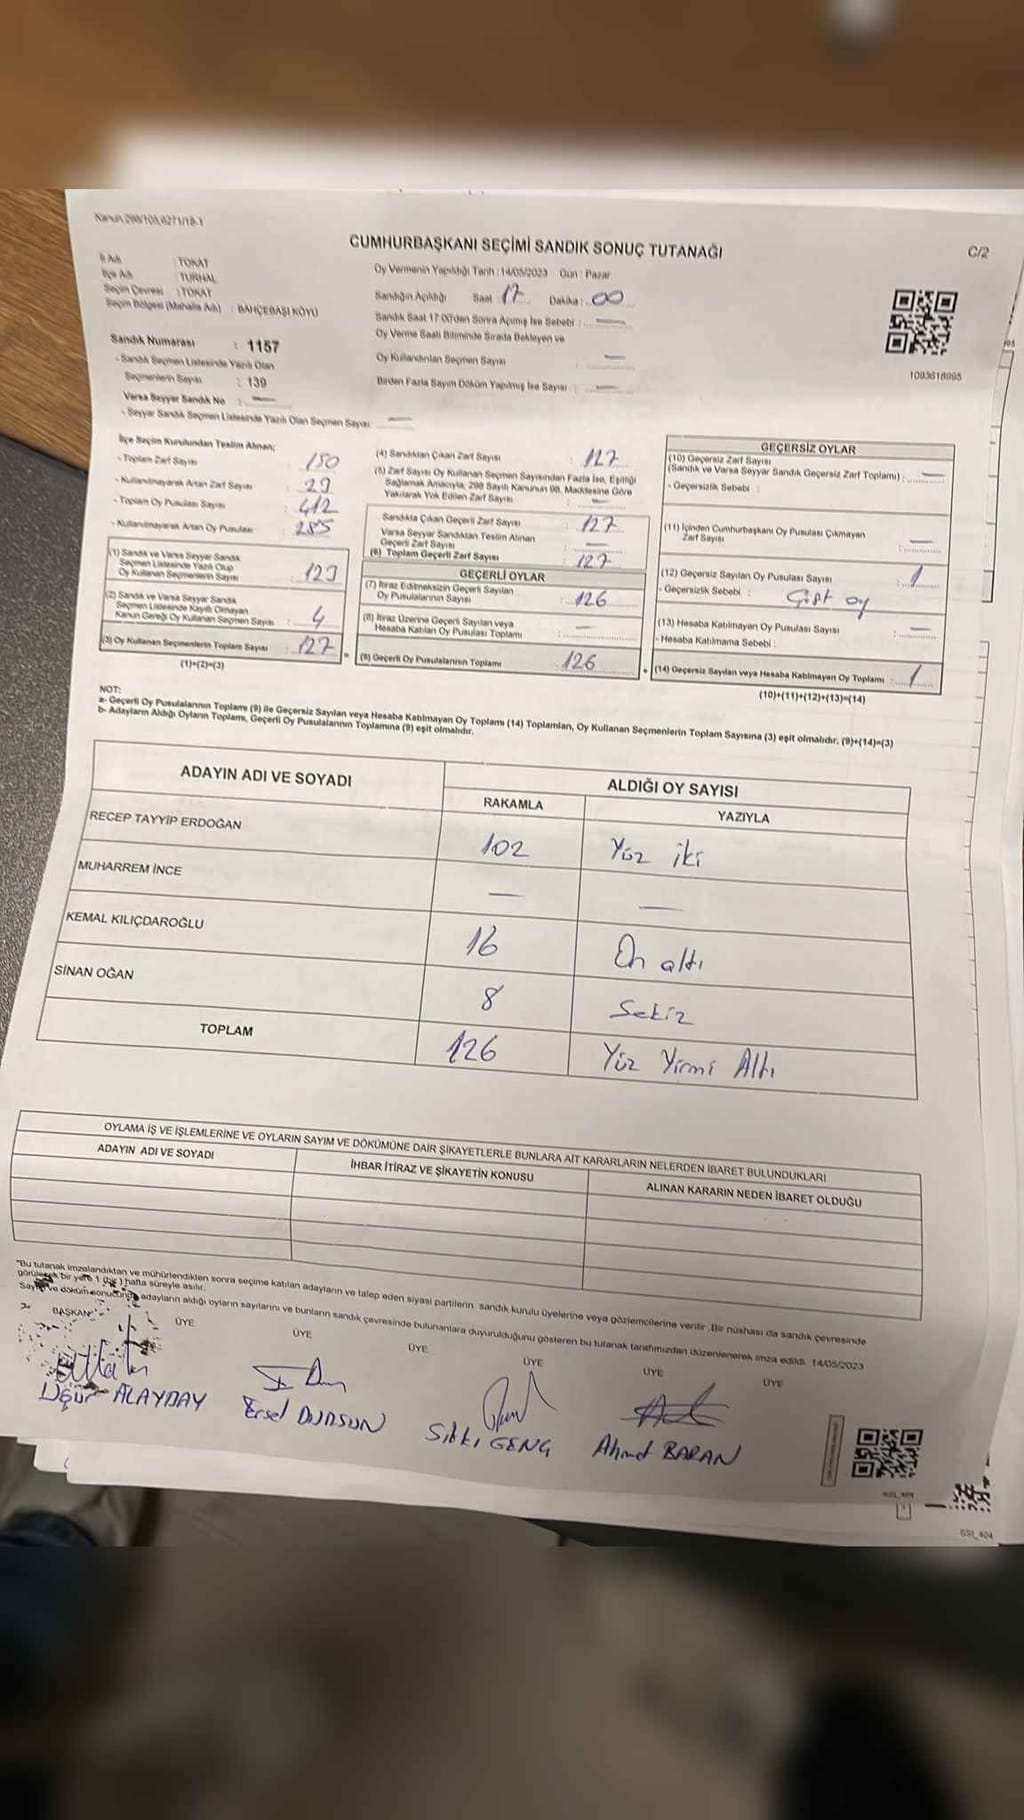 Kanun.298/105,6271/18-1
CUMHURBAŞKANI SEÇİMİ SANDIK SONUÇ TUTANAĞI
C/2
İl Adı : TOKAT
İlçe Adı : TURHAL
Seçim Çevresi : TOKAT
Seçim Bölgesi (Mahalle Adı) : BAHÇEBAŞI KÖYÜ
Oy Vermenin Yapıldığı Tarih : 14/05/2023 Gün : Pazar
Sandığın Açıldığı Saat : 17 Dakika : 00
Sandık Saat 17:00'den Sonra Açımış İse Sebebi : —
Oy Verme Saati Bitiminde Sırada Bekleyen ve
Oy Kullandırılan Seçmen Sayısı : —
Birden Fazla Sayım Döküm Yapılmış İse Sayısı : —
1093618995
Sandık Numarası : 1157
- Sandık Seçmen Listesinde Yazılı Olan
Seçmenlerin Sayısı : 139
Varsa Seyyar Sandık No : —
- Seyyar Sandık Seçmen Listesinde Yazılı Olan Seçmen Sayısı: —
İlçe Seçim Kurulundan Teslim Alınan;
- Toplam Zarf Sayısı : 150
- Kullanılmayarak Artan Zarf Sayısı : 23
- Toplam Oy Pusulası Sayısı : 412
- Kullanılmayarak Artan Oy Pusulası : 285
(1) Sandık ve Varsa Seyyar Sandık
Seçmen Listesinde Yazılı Olup
Oy Kullanan Seçmenlerin Sayısı : 123
(2) Sandık ve Varsa Seyyar Sandık
Seçmen Listesinde Kayıtlı Olmayan
Kanun Gereği Oy Kullanan Seçmen Sayısı : 4
(3) Oy Kullanan Seçmenlerin Toplam Sayısı : 127
(1)+(2)=(3)
(4) Sandıktan Çıkan Zarf Sayısı : 127
(5) Zarf Sayısı Oy Kullanan Seçmen Sayısından Fazla İse, Eşitliği
Sağlamak Amacıyla, 298 Sayılı Kanunun 98. Maddesine Göre
Yakılarak Yok Edilen Zarf Sayısı : —
Sandıkta Çıkan Geçerli Zarf Sayısı : 127
Varsa Seyyar Sandıktan Teslim Alınan
Geçerli Zarf Sayısı : —
(6) Toplam Geçerli Zarf Sayısı : 127
GEÇERLİ OYLAR
(7) İtiraz Edilmeksizin Geçerli Sayılan
Oy Pusulalarının Sayısı : 126
(8) İtiraz Üzerine Geçerli Sayılan veya
Hesaba Katılan Oy Pusulası Toplamı : —
(9) Geçerli Oy Pusulalarının Toplamı : 126
GEÇERSİZ OYLAR
(10) Geçersiz Zarf Sayısı
(Sandık ve Varsa Seyyar Sandık Geçersiz Zarf Toplamı) : —
- Geçersizlik Sebebi :
(11) İçinden Cumhurbaşkanı Oy Pusulası Çıkmayan
Zarf Sayısı : —
(12) Geçersiz Sayılan Oy Pusulası Sayısı : 1
- Geçersizlik Sebebi : Çift oy
(13) Hesaba Katılmayan Oy Pusulası Sayısı : —
- Hesaba Katılmama Sebebi :
(14) Geçersiz Sayılan veya Hesaba Katılmayan Oy Toplamı : 1
(10)+(11)+(12)+(13)=(14)
NOT:
a- Geçerli Oy Pusulalarının Toplamı (9) ile Geçersiz Sayılan veya Hesaba Katılmayan Oy Toplamı (14) Toplamları, Oy Kullanan Seçmenlerin Toplam Sayısına (3) eşit olmalıdır. (9)+(14)=(3)
b- Adayların Aldığı Oyların Toplamı, Geçerli Oy Pusulalarının Toplamına (9) eşit olmalıdır.
ADAYIN ADI VE SOYADI
ALDIĞI OY SAYISI
RAKAMLA YAZIYLA
RECEP TAYYİP ERDOĞAN 102 Yüz iki
MUHARREM İNCE — —
KEMAL KILIÇDAROĞLU 16 On altı
SİNAN OĞAN 8 Sekiz
TOPLAM 126 Yüz Yirmi Altı
OYLAMA İŞ VE İŞLEMLERİNE VE OYLARIN SAYIM VE DÖKÜMÜNE DAİR ŞİKAYETLERLE BUNLARA AİT KARARLARIN NELERDEN İBARET BULUNDUKLARI
ADAYIN ADI VE SOYADI İHBAR İTİRAZ VE ŞİKAYETİN KONUSU ALINAN KARARIN NEDEN İBARET OLDUĞU
"Bu tutanak imzalandıktan ve mühürlendikten sonra seçime katılan adayların ve talep eden siyasi partilerin sandık kurulu üyelerine veya gözlemcilerine verilir. Bir nüshası da sandık çevresinde
görülecek bir yere 1 (bir) hafta süreyle asılır.
Sayım ve döküm sonucunda adayların aldığı oyların sayılarını ve bunların sandık çevresinde bulunanlara duyurulduğunu gösteren bu tutanak tarafımızdan düzenlenerek imza edildi. 14/05/2023
BAŞKAN ÜYE ÜYE ÜYE ÜYE ÜYE ÜYE
Uğur ALAYBAY Ersel DURSUN Sıtkı GENÇ Ahmet BARAN
SSI_404
SSI_404